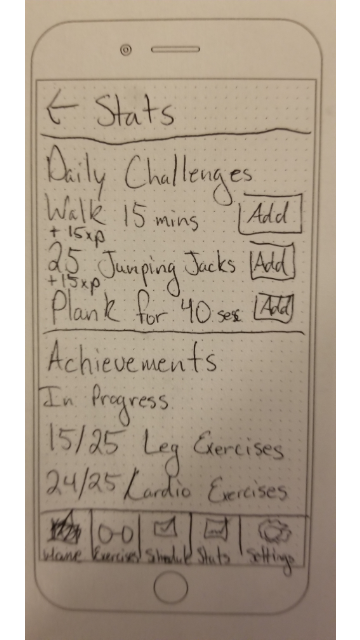 ← Stats
Daily Challenges
Walk 15 mins Add
+ 15xp
25 Jumping Jacks Add
+15xp
Plank for 40 secs Add
Achievements
In Progress
15/25 Leg Exercises
24/25 Cardio Exercises
Home Exercises Schedule Stats Settings